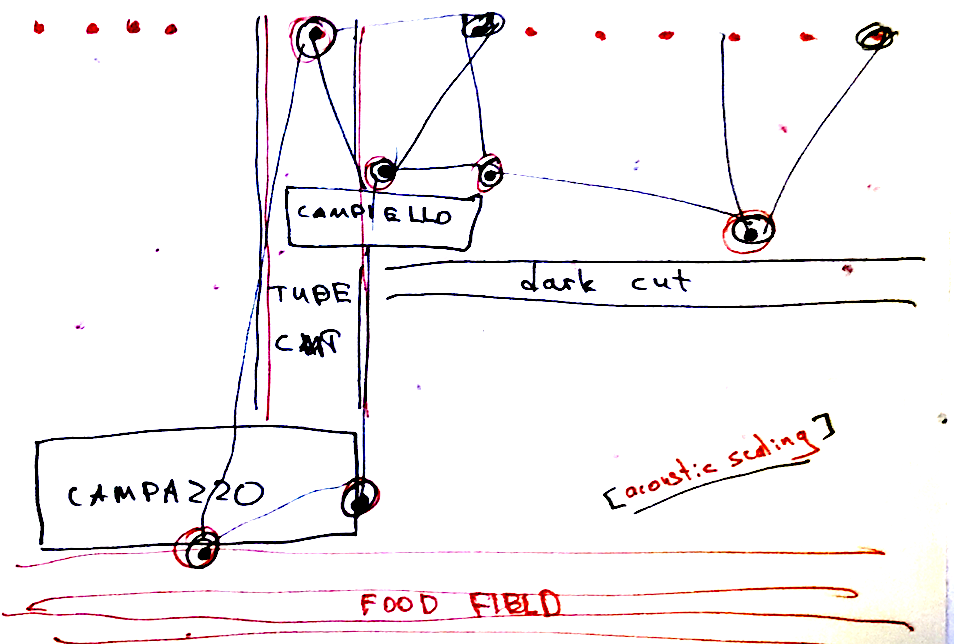 CAMPIELLO
dark cut
TUBE
CUT
CAMPAZZO
[acoustic scaling]
FOOD FIELD